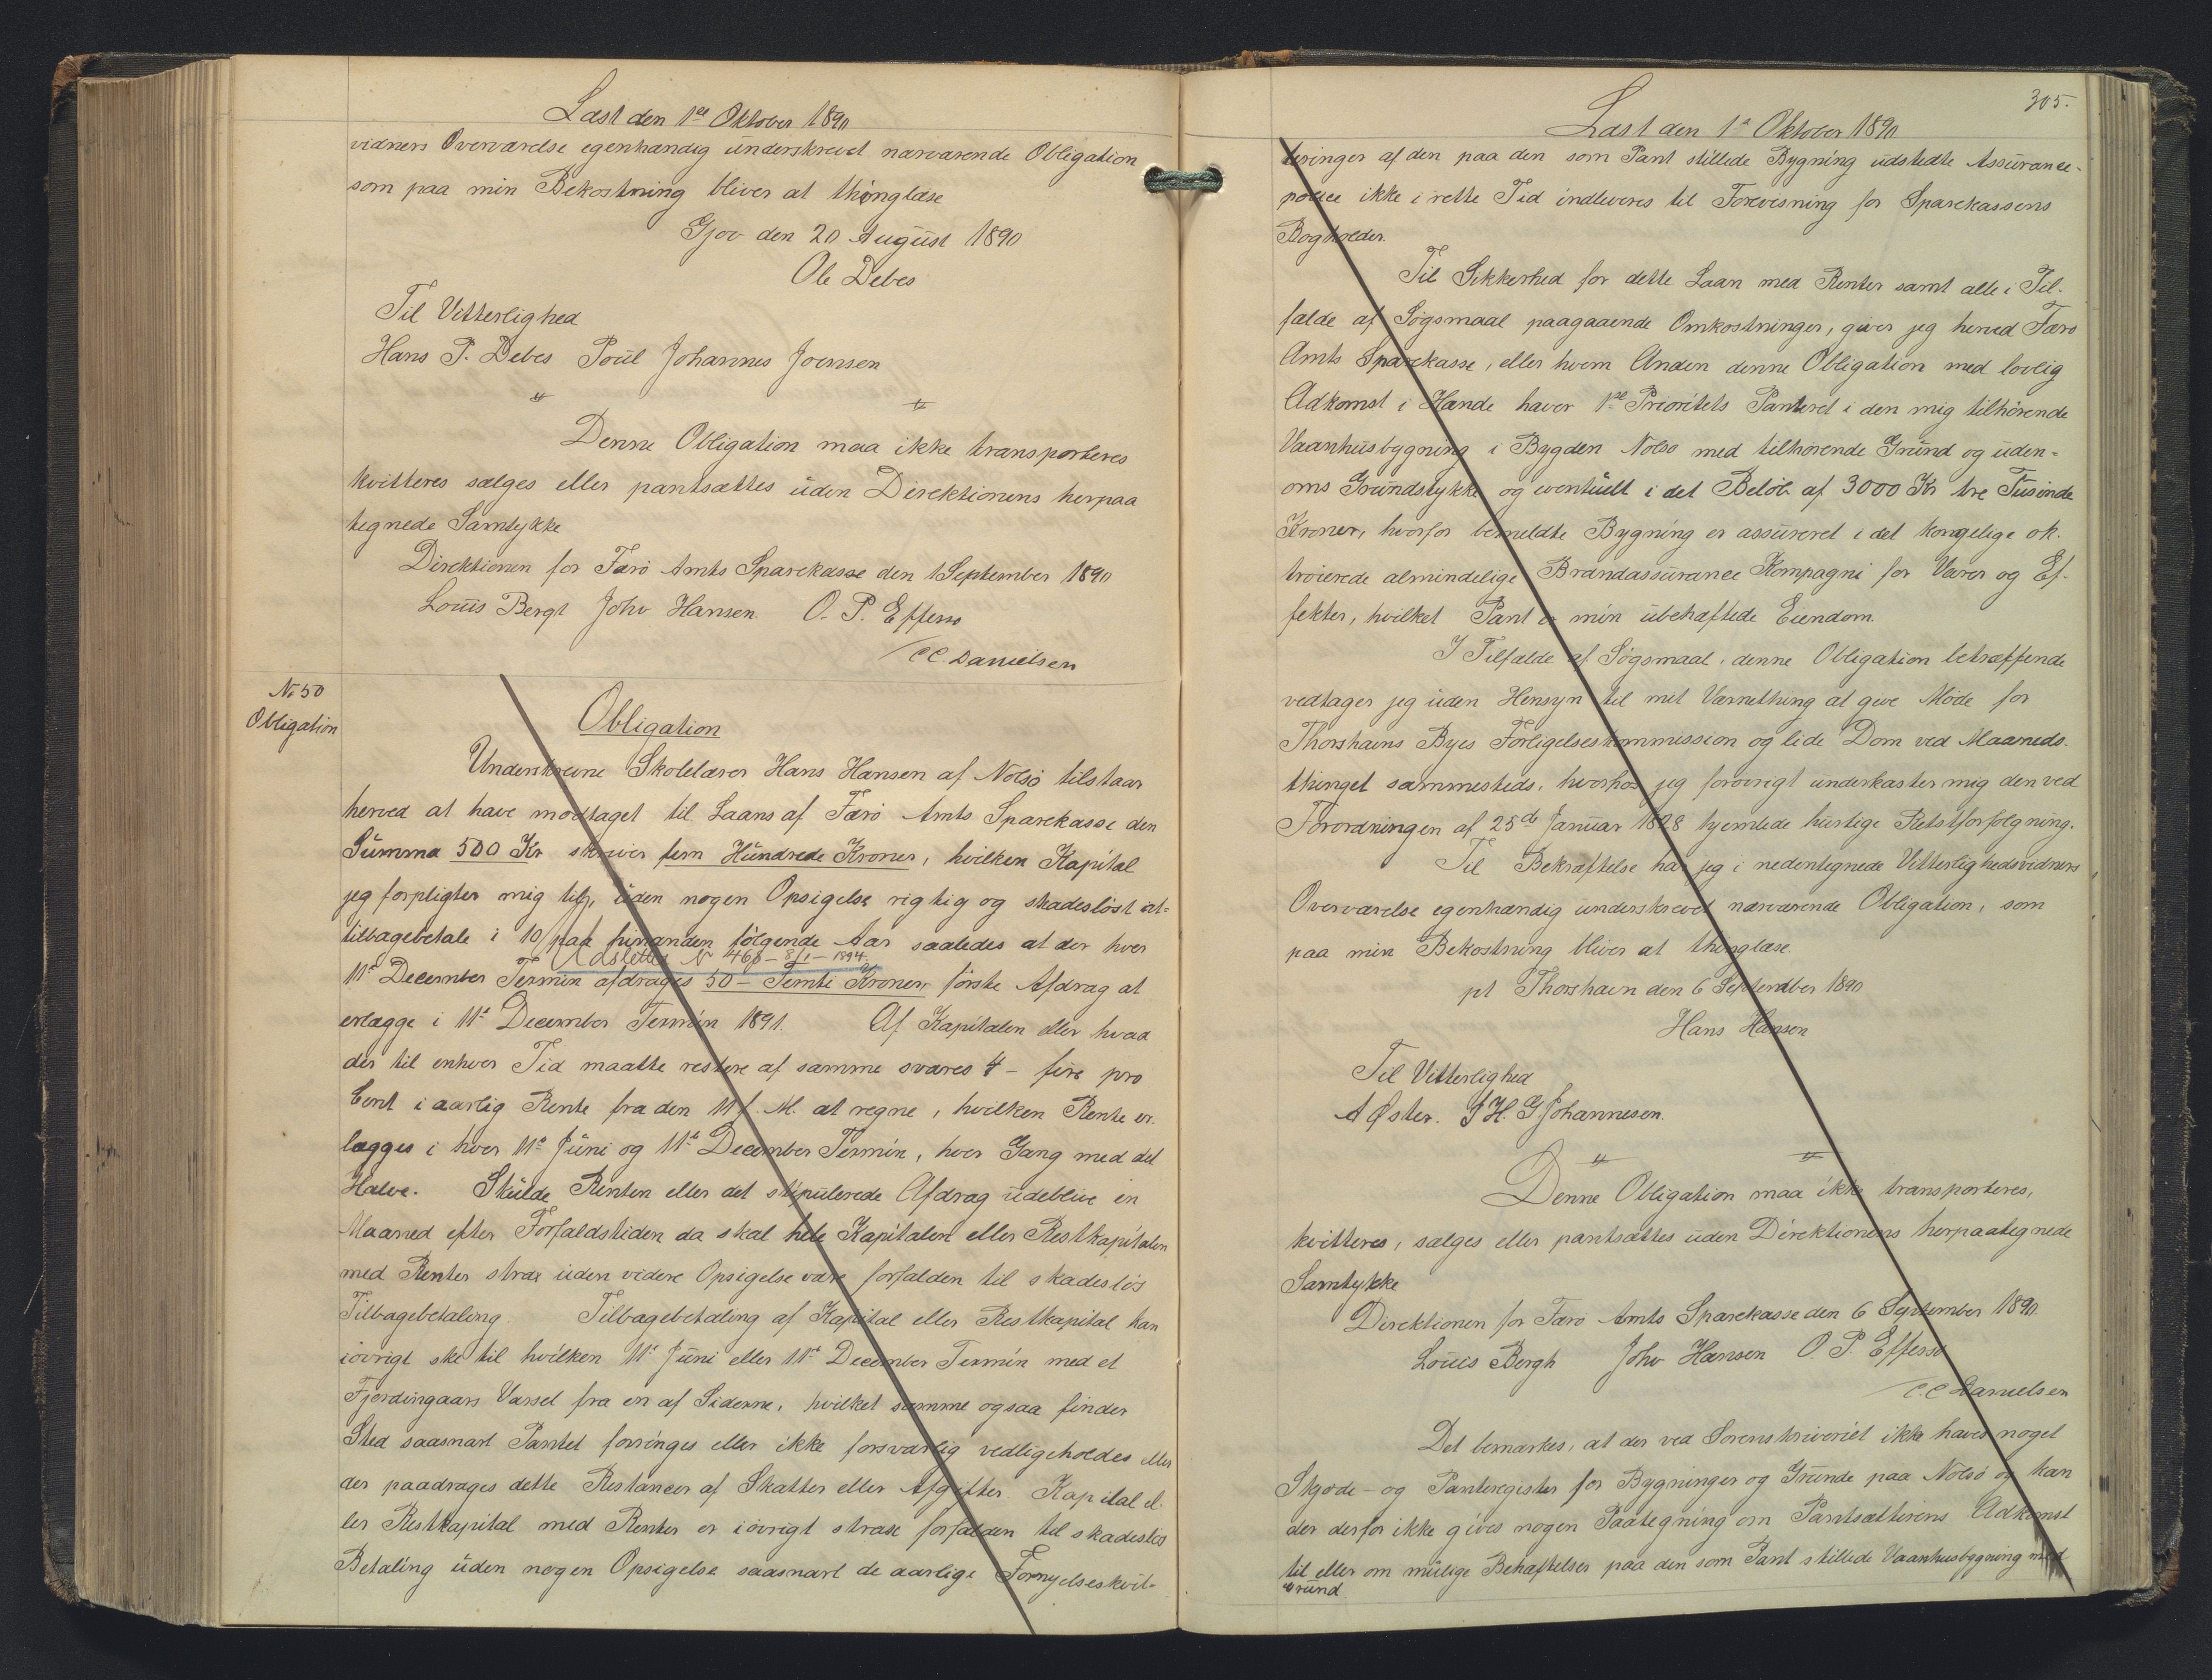 Læst den 1ste Oktober 1890
vidners Overværelse egenhændig underskrevet nærværende Obligation
som paa min Bekostning bliver at thinglæse
Gjov den 20 August 1890
Ole Debes
Til Vitterlighed
Hans P. Debes Poul Johannes Joensen
Denne Obligation maa ikke transporteres
kvitteres sælges eller pantsættes uden Direktionens herpaa
tegnede Samtykke
Direktionen for Færö Amts Sparekasse den 1 September 1890
Louis Bergh Johs Hansen O. P. Effersø
C C. Danielsen
No 50
Obligation
Obligation
Underskrevne Skolelærer Hans Hansen af Nolsö tilstaar
herved at have modtaget til Laans af Færö Amts Sparekasse den
Summa 500 Kr skriver fem Hundrede Kroner, hvilken Kapital
jeg forpligter mig til, uden nogen Opsigelse rigtig og skadeslöst at
tilbagebetale i 10 paa hinanden fölgende Aar saaledes at der hver
Udslettet No 468 – 8/1 – 1894.
11te December Termin afdrages 50 – Femti Kroner, förste Afdrag at
erlægge i 11te December Termin 1891. Af Kapitalen eller hvad
der til enhver Tid maatte restere af samme svares 4 – fire pro
Cent i aarlig Rente fra den 11 f. M. at regne, hvilken Rente er-
lægges i hver 11te Juni og 11te December Termin, hver Gang med det
Halve. Skulde Renten eller det stipulerede Afdrag udeblive en
Maaned efter Forfaldstiden da skal hele Kapitalen eller Restkapitalen
med Renter strax uden videre Opsigelse være forfalden til skadeslös
Tilbagebetaling. Tilbagebetaling af Kapital eller Restkapital kan
iövrigt ske til hvilken 11te Juni eller 11te December Termin med et
Fjerdingaars Varsel fra en af Siderne, hvilket samme ogsaa finder
Sted saasnart Pantet forringes eller ikke forsvarlig vedligeholdes eller
der paadrages dette Restancer af Skatter eller Afgifter. Kapital el-
ler Restkapital med Renter er iövrigt strax forfalden til skadeslös
Betaling uden nogen Opsigelse saasnart de aarlige Fornyelseskvit-
305.
Læst den 1ste Oktober 1890
teringer af den paa den som Pant stillede Bygning udstedte Assurance-
police ikke i rette Tid indleveres til Forevisning for Sparekassens
Bogholder.
Til Sikkerhed for dette Laan med Renter samt alle i Til-
fælde af Sögsmaal paagaaende Omkostninger, giver jeg herved Færö
Amts Sparekasse, eller hvem Anden denne Obligation med lovlig
Adkomst i Hænde haver 1ste Prioritets Panteret i den mig tilhörende
Vaanhusbygning i Bygden Nolsö med tilhörende Grund og uden-
oms Grundstykke og eventuelt i det Belöb af 3000 Kr tre Tusinde
Kroner, hvorfor bemeldte Bygning er assureret i det kongelige ok-
troierede almindelige Brandassurance Kompagni for Varer og Ef-
fekter, hvilket Pant er min ubehæftede Eiendom.
I Tilfælde af Sögsmaal, denne Obligation betræffende
vedtager jeg uden Hensyn til mit Værnething at give Möde for
Thorshavns Byes Forligelseskommission og lide Dom ved Maaneds-
thinget sammesteds, hvorhos jeg forövrigt underkaster mig den ved
Forordningen af 25de Januar 1828 hjemlede hurtige Retsforfolgning.
Til Bekræftelse har jeg i nedentegnede Vitterlighedsvidners
Overværelse egenhændig underskrevet nærværende Obligation, som
paa min Bekostning bliver at thinglæse.
pt Thorshavn den 6 September 1890
Hans Hansen
Til Vitterlighed
A Øster. J H. G Johannesen.
Denne Obligation maa ikke transporteres,
kvitteres, sælges eller pantsættes uden Direktionens herpaategnede
Samtykke
Direktionen for Færö Amts Sparekasse den 6 September 1890.
Louis Bergh Johs Hansen O. P. Effersö
C. C Danielsen
Det bemærkes, at der ved Sorenskriveriet ikke haves noget
Skjöde- og Panteregister for Bygninger og Grunde paa Nolsö og kan
der derfor ikke gives nogen Paategning om Pantsætterens Adkomst
til eller om mulige Behæftelser paa den som Pant stillede Vaanhusbygning med
Grund.